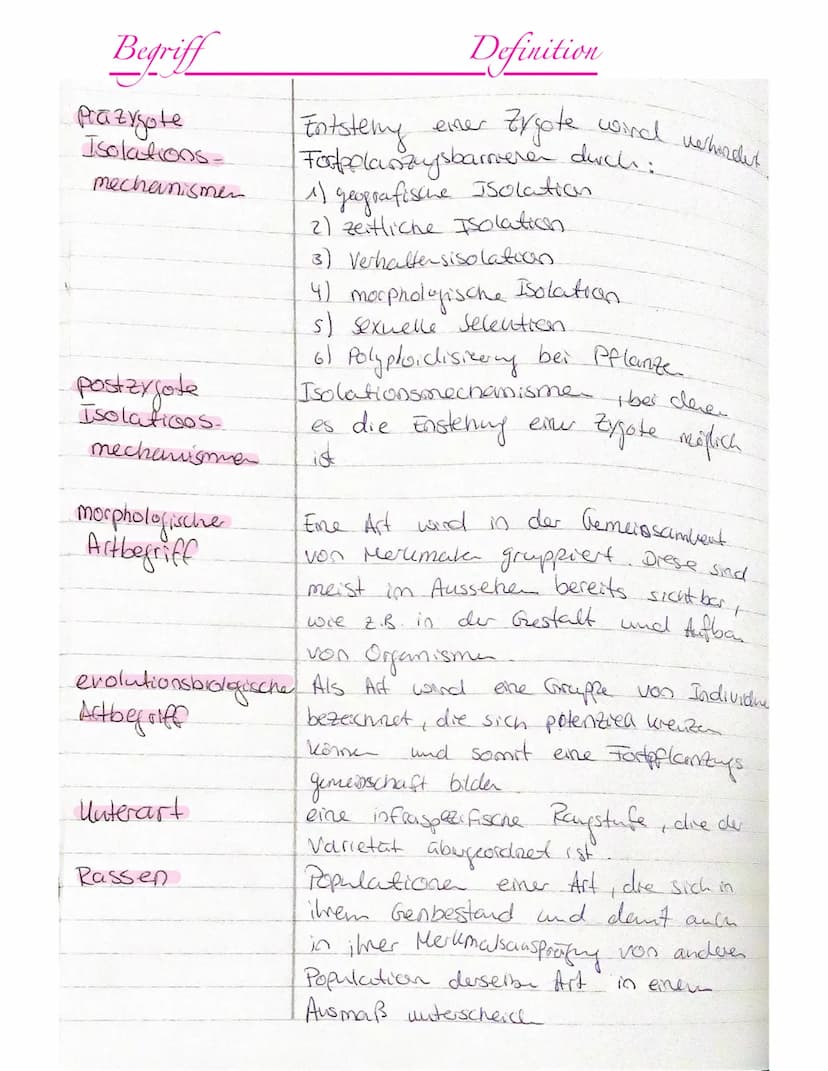 Begriff Definition
präzygote Entstehung einer Zygote wird verhindert.
Isolations- Fortpflanzungsbarrieren durch:
mechanismen 1) geografische Isolation
2) zeitliche Isolation
3) Verhaltensisolation
4) morphologische Isolation
5) sexuelle Selektion
6) Polyploidisierung bei Pflanzen
postzygote Isolationsmechanismen, bei denen
Isolations- es die Enstehung einer Zygote möglich
mechanismen ist
morphologische Eine Art wird in der Gemeinsamkeit
Artbegriff von Merkmalen gruppiert. Diese sind
meist im Aussehen bereits sichtbar,
wie z.B. in der Gestalt und Aufbau
von Organismen.
evolutionsbiologische Als Art wird eine Gruppe von Individuen
Artbegriff bezeichnet, die sich potenziell kreuzen
können und somit eine Fortpflanzungs
gemeinschaft bilden
Unterart eine infraspezifische Rangstufe, die der
Varietät übergeordnet ist.
Rassen Populationen einer Art, die sich in
ihrem Genbestand und damit auch
in ihrer Merkmalsausprägung von anderen
Population derselben Art in einem
Ausmaß unterscheiden